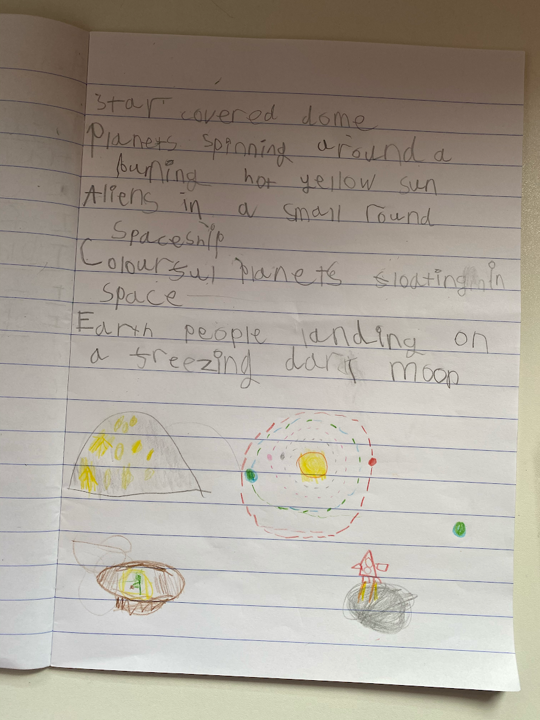 Star covered dome
Planets spinning around a
burning hot yellow sun
Aliens in a small round
spaceship
Colourful planets floating in
space
Earth people landing on
a freezing dark moon